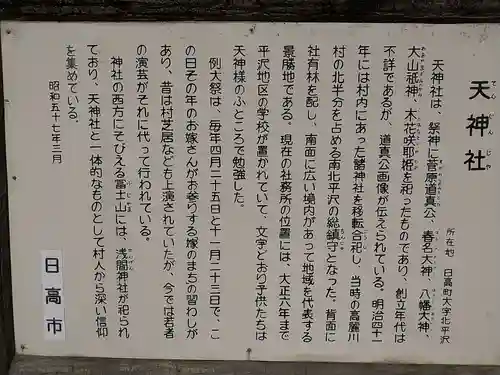 天神社
所在地　日高町大字北平沢
天神社は、祭神に菅原道真公、春名大神、八幡大神、
大山祇神、木花咲耶姫を祀ったものであり、創立年代は
不詳であるが、道真公画像が伝えられている。明治四十
年には村内にあった諸神社を移転合祀し、当時の高麗川
村の北半分を占める南北平沢の総鎮守となった。背面に
社有林を配し、南面に広い境内があって地域を代表する
景勝地である。現在の社務所の位置には、大正六年まで
平沢地区の学校が置かれていて、文字どおり子供たちは
天神様のふところで勉強した。
例大祭は、毎年四月二十五日と十一月二十三日で、こ
の日その年のお嫁さんがお参りする嫁のまちの習わしが
あり、昔は村芝居なども上演されていたが、今では若者
の演芸がそれに代って行われている。
神社の西方にそびえる富士山には、浅間神社が祀られ
ており、天神社と一体的なものとして村人から深い信仰
を集めている。
昭和五十七年三月
日高市